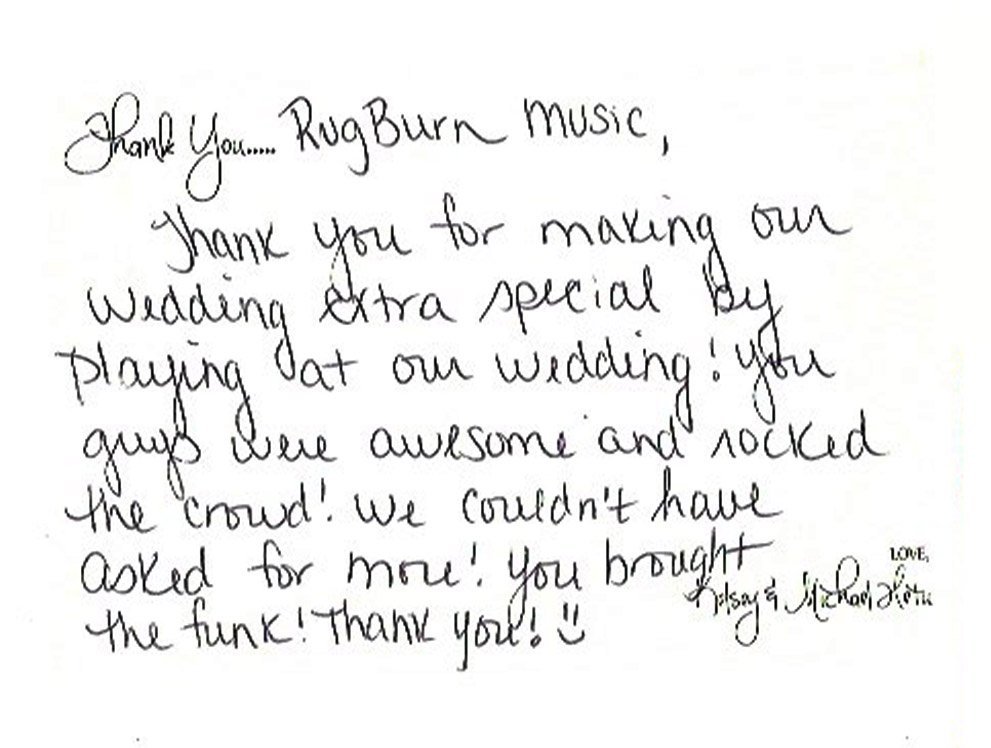 Thank You..... RugBurn Music,
Thank you for making our
wedding extra special by
playing at our wedding! You
guys were awesome and rocked
the crowd! We couldn't have
asked for more! You brought
the funk! Thank you! :)
LOVE,
Kelsey & Michael